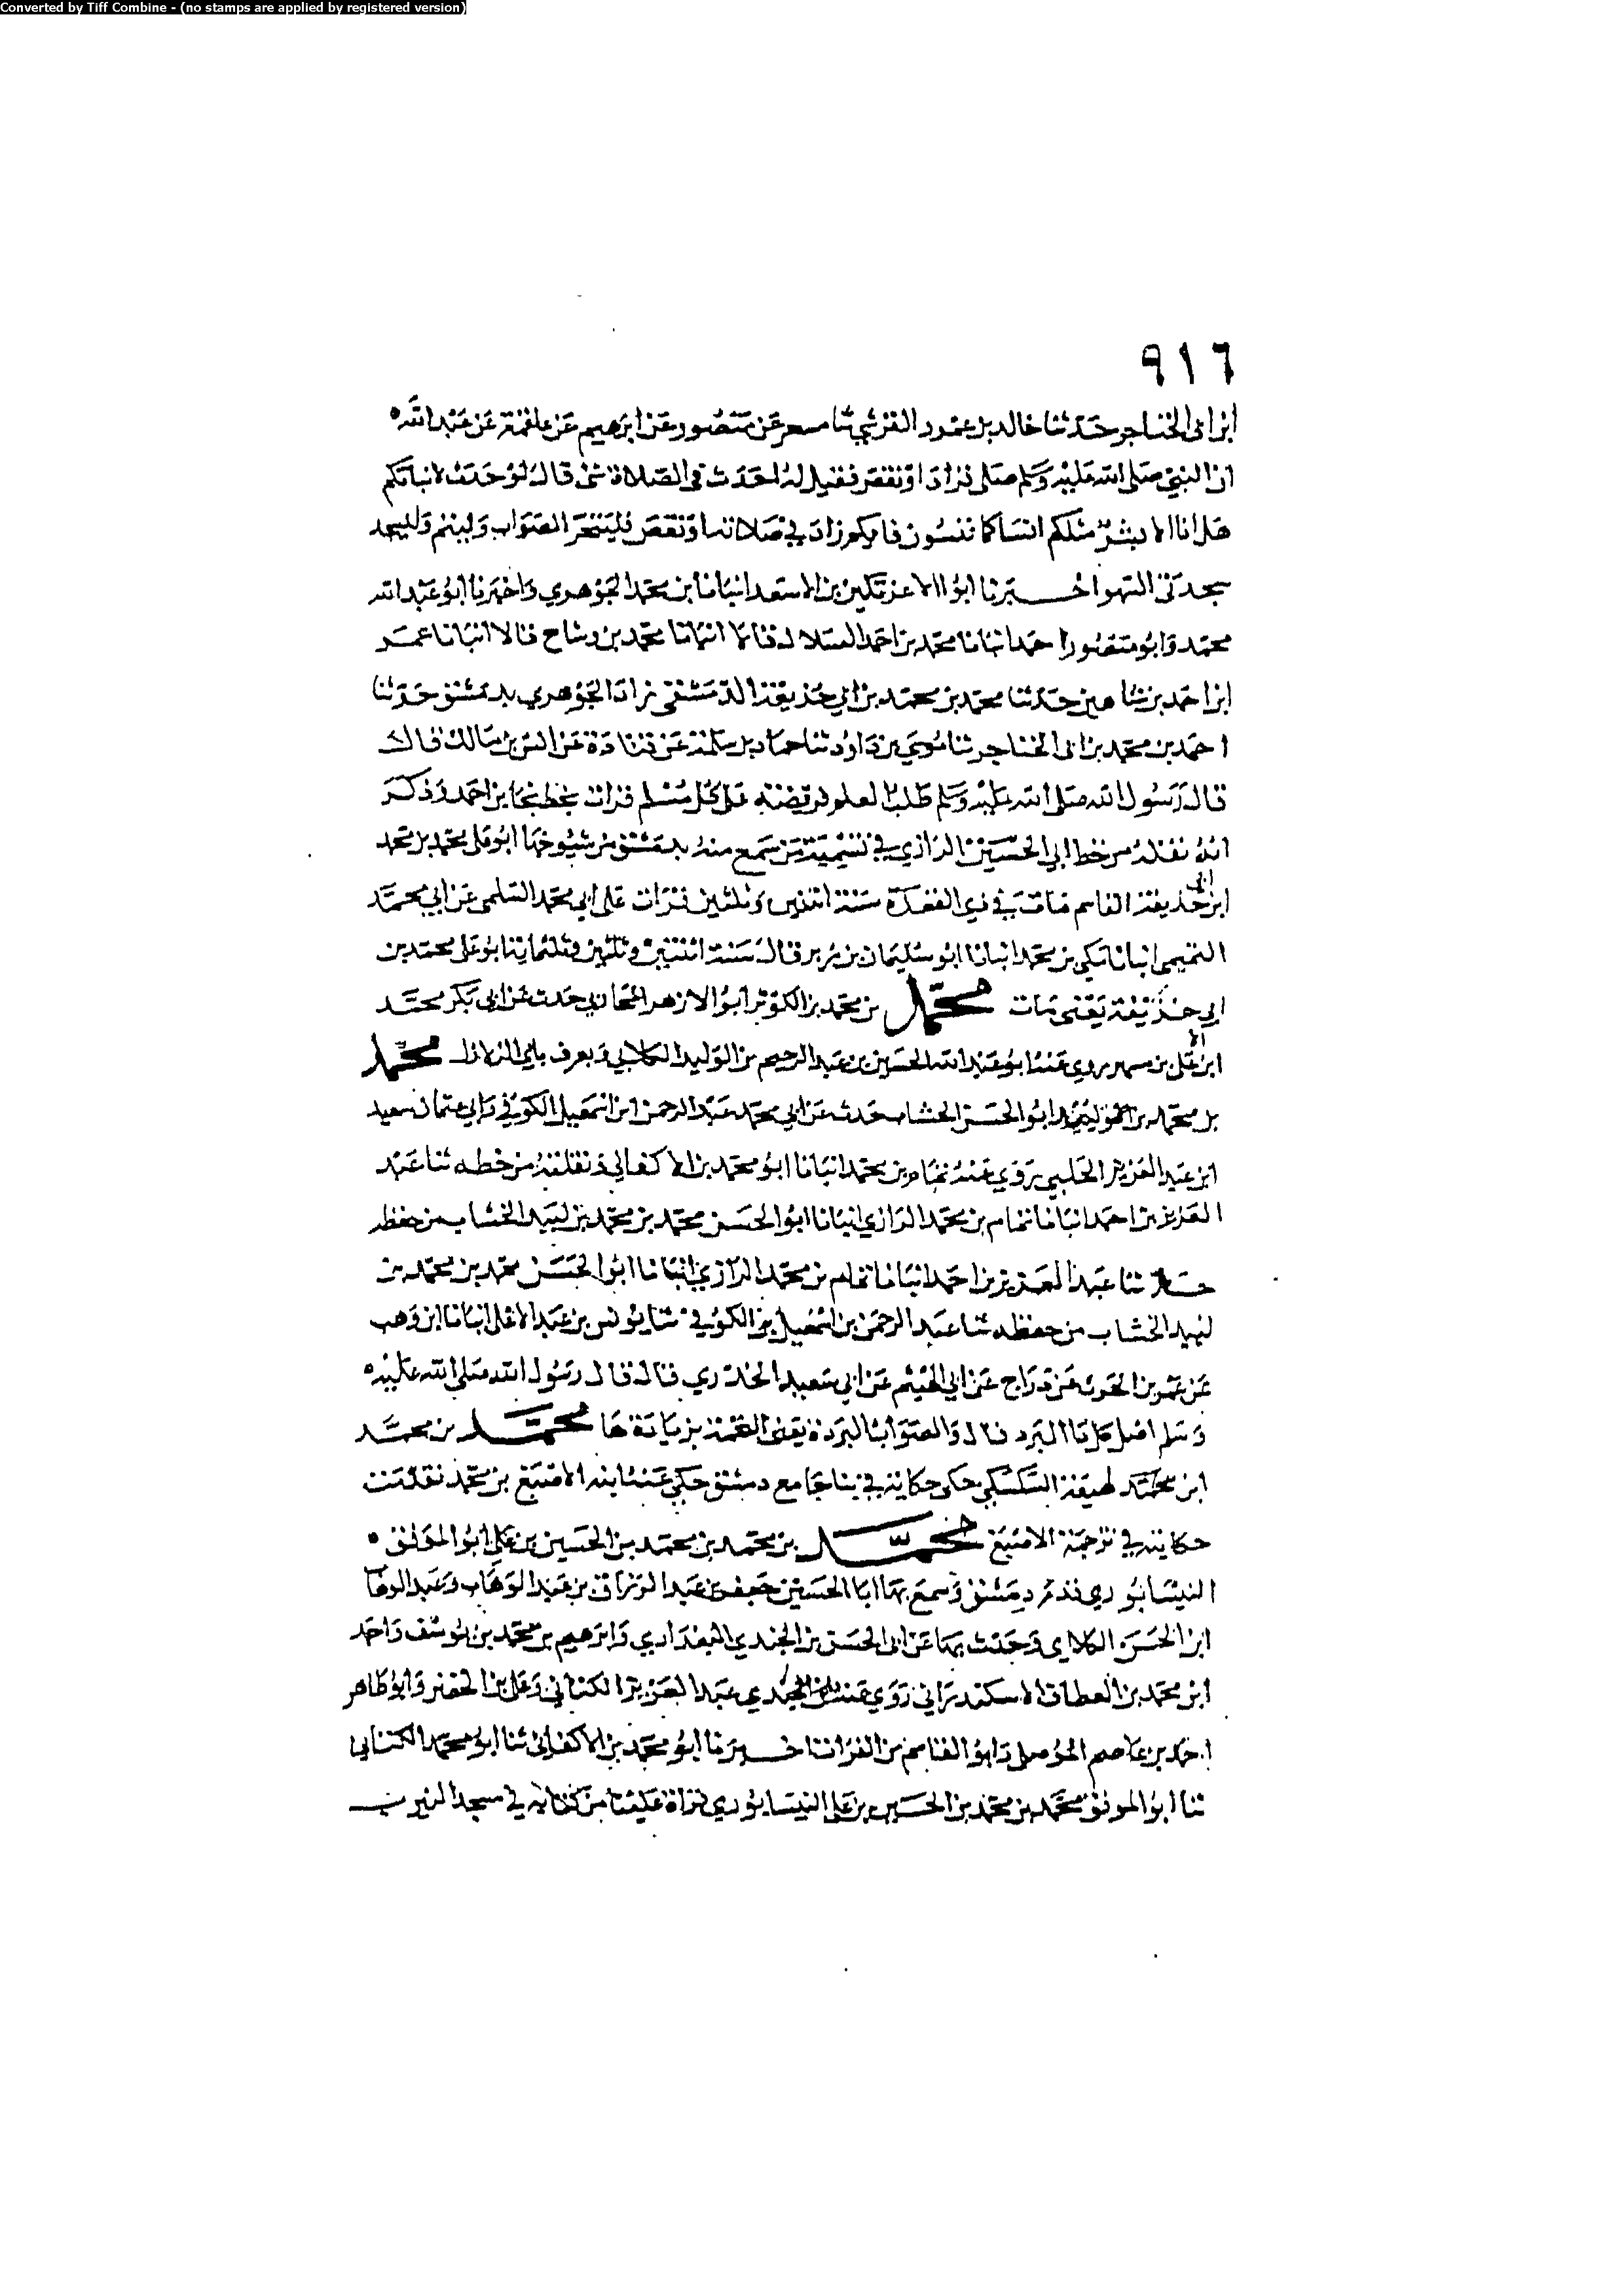 Converted by Tiff Combine - (no stamps are applied by registered version)
٩١٦
ابن ابى الخناجر حدثنا خالد بن عمرو القرشي ثنا مسعر عن منصور عن ابرهيم عن علقمة عن عبد الله
ان النبي صلى الله عليه وسلم صلى فزاد او نقص فقيل له احدث في الصلاة شئ قال لو حدث لانباتكم
هل انا الا بشر مثلكم انسا كما تنسون فايكم زاد في صلاته او نقص فليتحر الصواب وليتم وليسجد
سجدتى السهو اخبرنا ابو الاعز تكين بن الاسعد انبانا ابن محمد الجوهري واخبرنا ابو عبد الله
محمد وابو منصور احمد انبانا محمد بن احمد السلال قالا انبانا محمد بن وشاح قالا انبانا عمر
ابن احمد بن شاهين حدثنا محمد بن محمد بن ابي حذيفة الدمشقى زاد الجوهري بدمشق حدثنا
احمد بن محمد بن ابى الخناجر ثنا موسي بن داود ثنا حماد بن سلمة عن قتادة عن انس بن مالك قال
قال رسول الله صلى الله عليه وسلم طلب العلم فريضة على كل مسلم قرات بخط نجا بن احمد وذكر
انه نقله من خط ابي الحسين الرازي في تسمية من سمع منه بدمشق من شيوخها ابو على محمد بن محمد
ابن ابى حذيفة القاسم مات في ذي القعدة سنة اثنتين وثلثين قرات على ابي محمد السلمى عن ابي محمد
التميمى انبانا مكي بن محمد انبانا ابو سليمان بن زبر قال سنة اثنتين وثلثين وثلثماية ابو على محمد بن
ابي حذيفة يعنى مات محمد بن محمد بن الكوثر ابو الازهر حدث عن ابى بكر محمد
ابن على بن مسهر روي عنه ابو عبد الله الحسين بن عبد الرحيم بن الوليد الكلابي ويعرف بابى الزلازل محمد
بن محمد بن لبيد ابو الحسن الخشاب حدث عن ابي محمد عبد الرحمن ابن اسمعيل الكوفي وابي عثمان سعيد
ابن عبد العزيز الحلبي روي عنه تمام بن محمد انبانا ابو محمد بن الاكفاني ونقلته من خطه ثنا عبد
العزيز بن احمد انبانا تمام بن محمد الرازي انبانا ابو الحسن محمد بن محمد بن لبيد الخشاب من حفظه
ثنا عبد العزيز بن احمد انبانا تمام بن محمد الرازي انبانا ابو الحسن محمد بن محمد بن
لبيد الخشاب من حفظه ثنا عبد الرحمن بن اسمعيل بن الكوفي ثنا يونس بن عبد الاعلى انبانا ابن وهب
عن عمرو بن الحرث عن دراج عن ابي الهيثم عن ابي سعيد الخدري قال قال رسول الله صلى الله عليه
وسلم اصل كل داا البرد قال والصواب البردة يعنى التخمة بزيادة ها محمد بن محمد
ابن محمد لهيعة السكسكي حكى حكاية في بنا جامع دمشق حكي عنه ابنه الاصبغ بن محمد تقدمت
حكايته في ترجمة الاصبغ محمد بن محمد بن محمد بن الحسين بن علي ابو الموفق
النيسابوري قدم دمشق وسمع بها ابا الحسين جعفر بن عبد الرزاق بن عبد الوهاب وعبد الوهاب
ابن الحسن الكلابي وحدث بها عن ابى الحسن بن الجندي البغدادي وابرهيم بن محمد بن يوسف واحمد
ابن محمد بن العطاف الاسكندراني روي عنه عبد العزيز الكتاني وعلى بن الخضر وابو طاهر
احمد بن عاصم الموصلى وابو القاسم بن الفرات اخبرنا ابو محمد بن الاكفاني ثنا ابو محمد الكتاني
ثنا ابو الموفق محمد بن محمد بن الحسين بن على النيسابوري قراة علينا من كتابه في مسجد النيرب